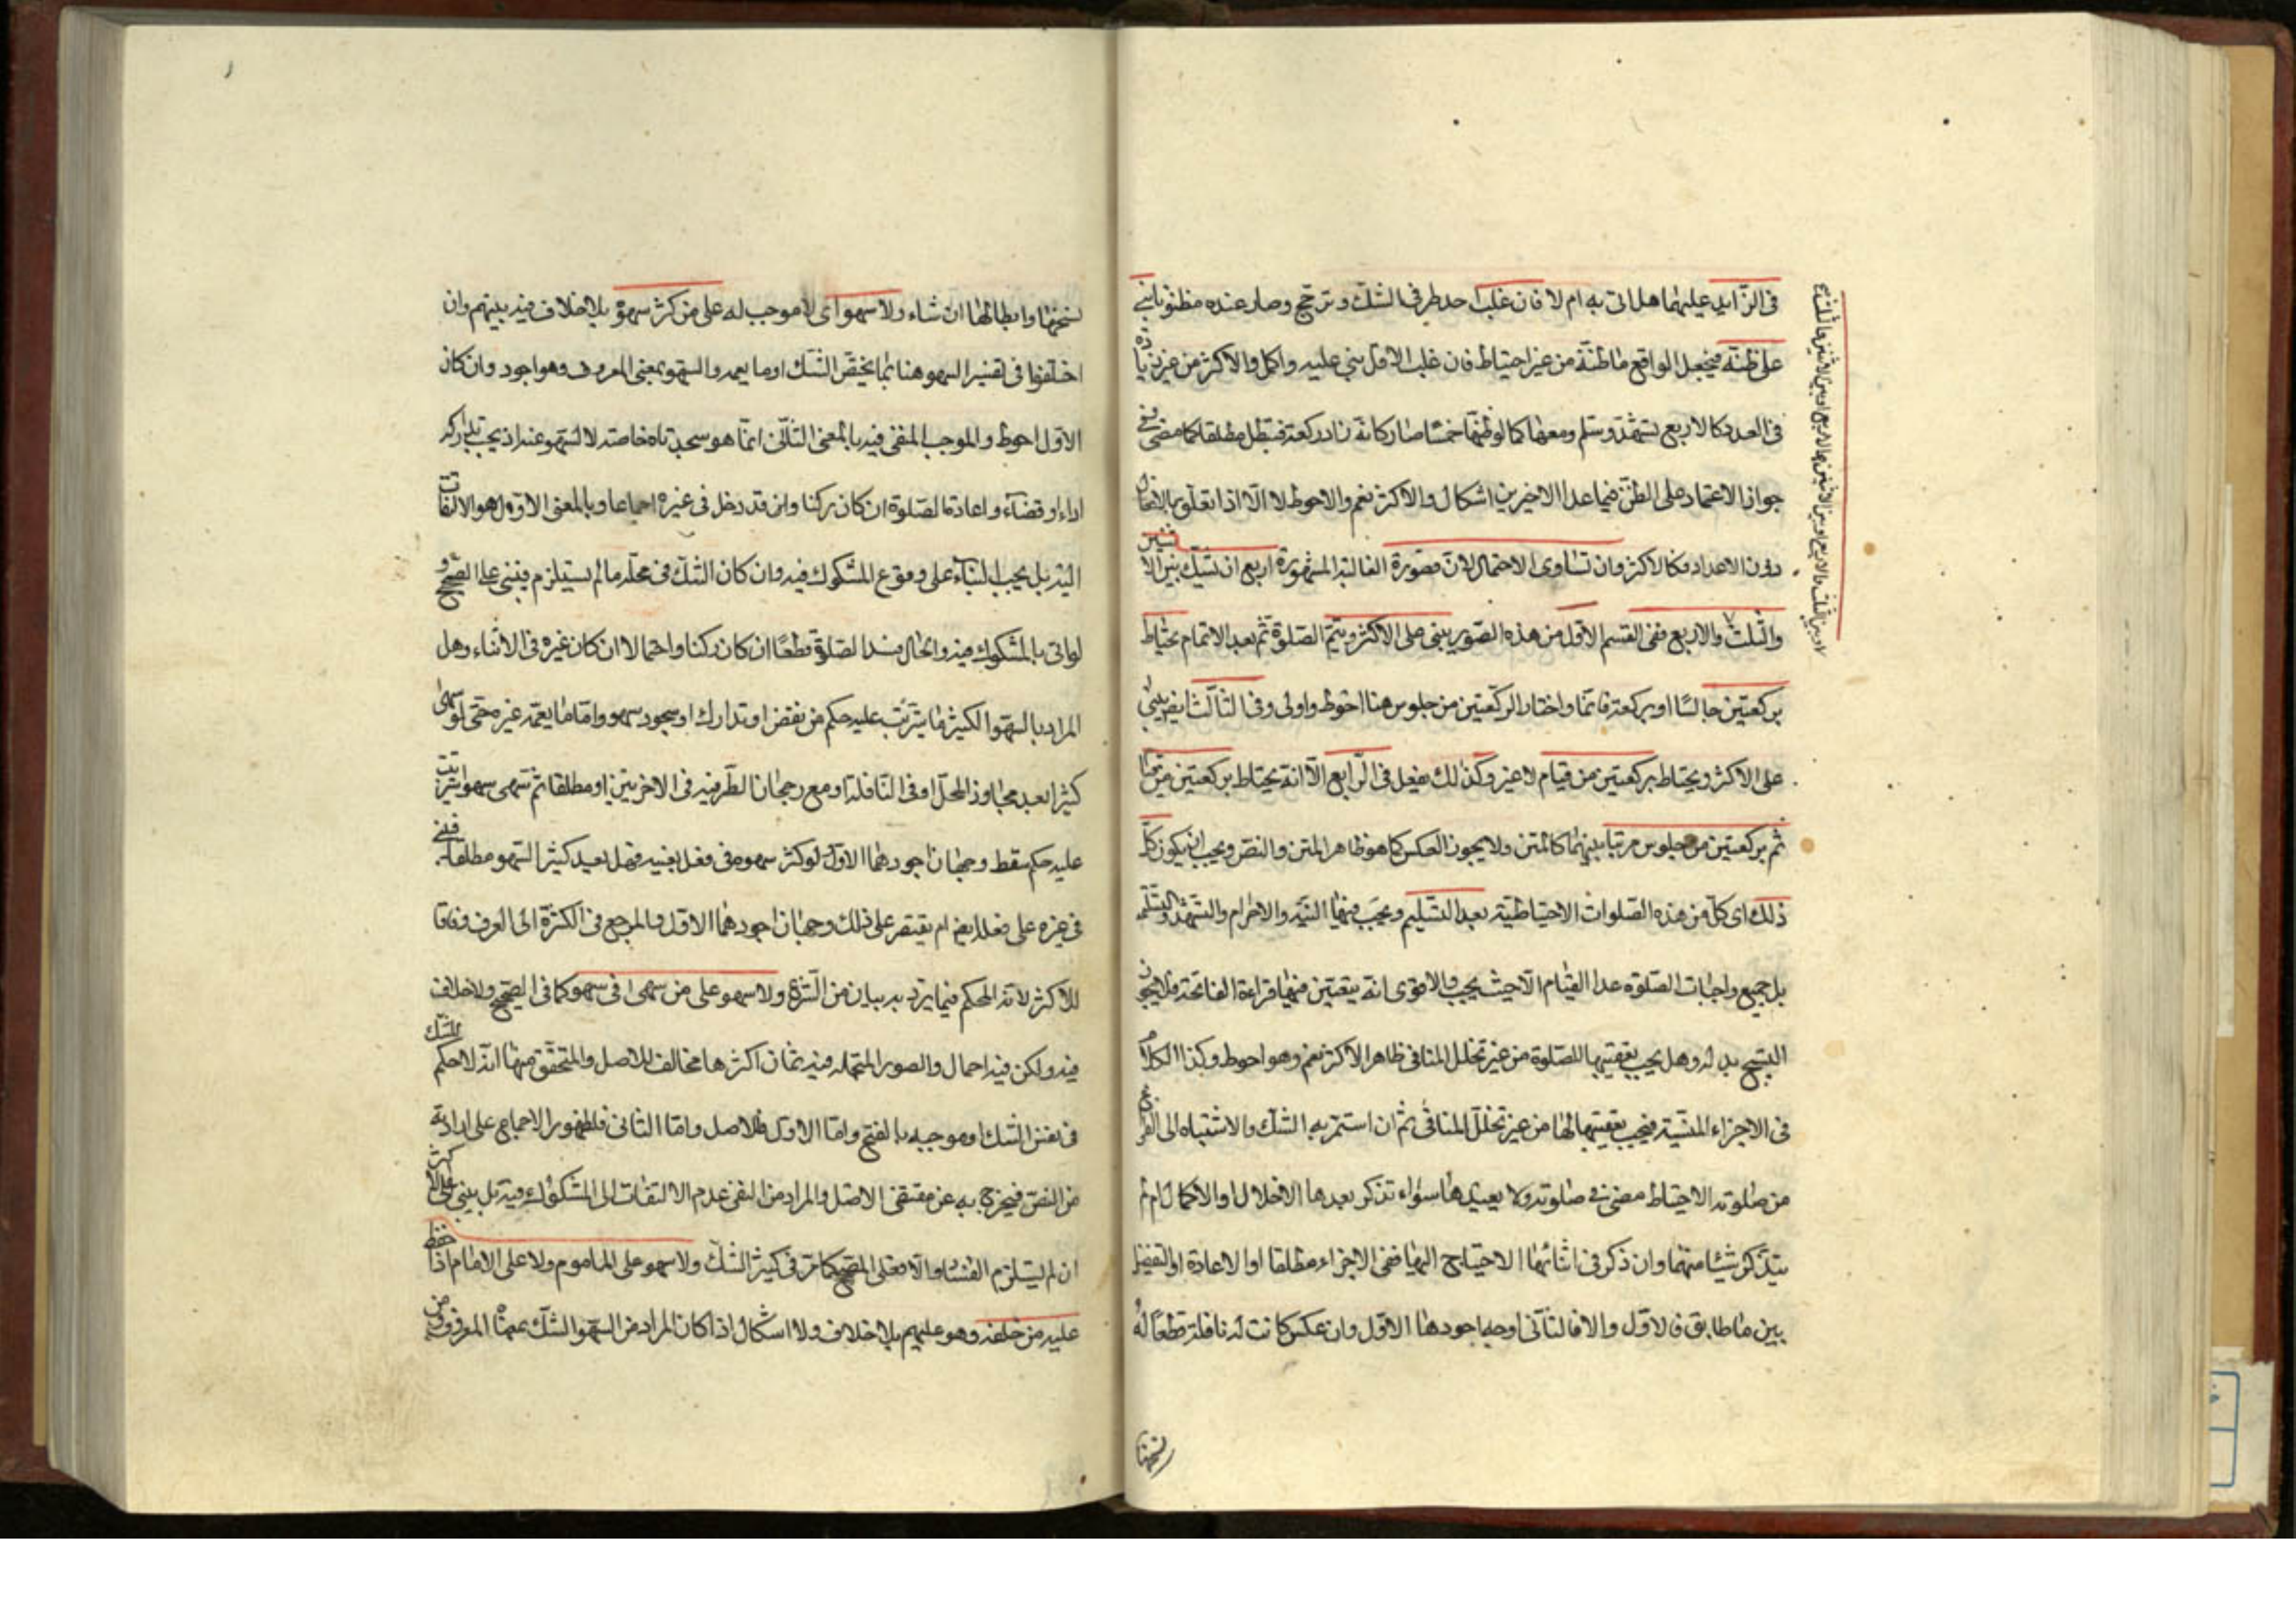 في الزايد عليهما هل اتى به ام لا فان غلب احد طرفي الشك وترجح وصار عنده مظنونا بنى
على ظنه فيجعل الواقع ما ظنه من غير احتياط فان غلب الاقل بني عليه واكمل والاكثر من غير زيادة
في العدد كالاربع تشهد وسلم ومعها كما لو ظنها خمسا صار كانه زاد ركعة فتبطل مطلقا كما مضى وفي
جواز الاعتماد على الظن فيما عدا الاخيرين اشكال والاكثر نعم والاحوط لا الا اذا تعلق بالافعال
دون الاعداد فكالاكثر وان تساوى الاحتمالان فصورة الغالبة المشهورة اربع ان يشك بين الاثنين
والثلث والاربع ففي القسم الاول من هذه الصور يبني على الاكثر ويتم الصلوة ثم بعد الاتمام يحتاط
بركعتين جالسا او بركعة قائما واختار الركعتين من جلوس هنا احوط واولى وفي الثالث ايضا يبني
على الاكثر ويحتاط بركعتين من قيام لا غير وكذلك يفعل في الرابع الا انه يحتاط بركعتين من قيام
ثم بركعتين من جلوس مرتبا بينهما كالمتن ولا يجوز العكس كما هو ظاهر المتن والنص ويجب ان يكون كل
ذلك اى كل من هذه الصلوات الاحتياطية بعد التسليم ويجب فيها النية والاحرام والتشهد والتسليم
بل جميع واجبات الصلوة عدا القيام الا حيث يجب والاقوى انه يتعين فيها قراءة الفاتحة فلا يجزي
التسبيح بدله وهل يجب تعقيبها للصلوة من غير تخلل المنافي ظاهر الاكثر نعم وهو احوط وكذا الكلام
في الاجزاء المنسية فيجب تعقيبها لها من غير تخلل المنافي ثم ان استمر به الشك والاشتباه الى الفراغ
من صلوته الاحتياط مضى في صلوته ولا يعيدها سواء تذكر بعدها الاخلال او الاكمال ام لم
يتذكر شيئا منهما وان ذكر في اثنائها الاحتياج اليها ففي الاجزاء مطلقا او الاعادة او التفصيل
بين ما طابق فالاول والا فالثاني اوجه اجودها الاول وان عكس كانت له نافلة قطعا له
لا وبين الثلث والاربع او بين الاثنين والاربع او بين الاثنين والثلث
لا سهو اى لا موجب له على من كثر سهوه بلا خلاف فيه بينهم وان
اختلفوا في تفسير السهو هنا بما يخص الشك او ما يعمه والسهو بمعنى المعروف وهو اجود وان كان
الاول احوط والموجب المنفي فيه بالمعنى الثاني انما هو سجدتاه خاصة لا السهو عنه اذ يجب تداركه
اداء او قضاء واعادة الصلوة ان كان ركنا وان قد دخل في غيره اجماعا وبالمعنى الاول هو الالتفات
اليه بل يجب البناء على وقوع المشكوك فيه وان كان الشك في محله ما لم يستلزم فيبني على المصحح و
لو اتى بالمشكوك فيه والحال هذا لصلوة قطعا ان كان ركنا واحتمالا ان كان غيره في الاثناء وهل
المراد بالسهو الكثير ما يترتب عليه حكم من نقض او تدارك او سجود سهو واما ما يعمه غير حتى لو سهى
كثيرا بعد مجاوز المحل او في النافلة او مع رجحان الطرفين في الاخريين او مطلقا ثم سهى سهوا يترتب
عليه حكم سقط وجهان اجودهما الاول لو كثر سهوه في فعل بعينه فهل يعد كثير السهو مطلقا فيبني
في غيره على فعله ايضا ام يقتصر على ذلك وجهان اجودهما الاول والمرجع في الكثرة الى العرف وفاقا
للاكثر لانه المحكم فيما يرد به بيان من الشرع ولا سهو على من سهى في سهو كما في الصحيح ولا خلاف
فيه ولكن فيه اجمال والصور المحتمله فيه ثمان اكثرها مخالف للاصل والمتحقق منها انه لا حكم للشك
في نفس الشك او موجبه بالفتح واما الاول فللاصل واما الثاني فلظهور الاجماع على ارادته
من النص فيخرج به عن مقتضى الاصل والمراد من النفي عدم الالتفات الى المشكوك فيه بل يبني على الاكثر
ان لم يستلزم الفساد والا فعلى المصحح كما مر في كثير الشك ولا سهو على الماموم ولا على الامام اذا حفظ
عليه من خلفه وهو عليهم بلا خلاف ولا اشكال اذا كان المراد من السهو الشك بمعناه المعروف